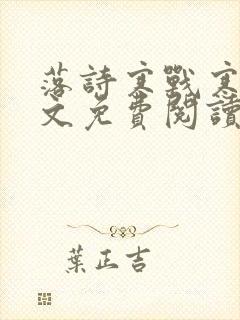 落詩寒戰寒
文免費閱讀
葉正吉